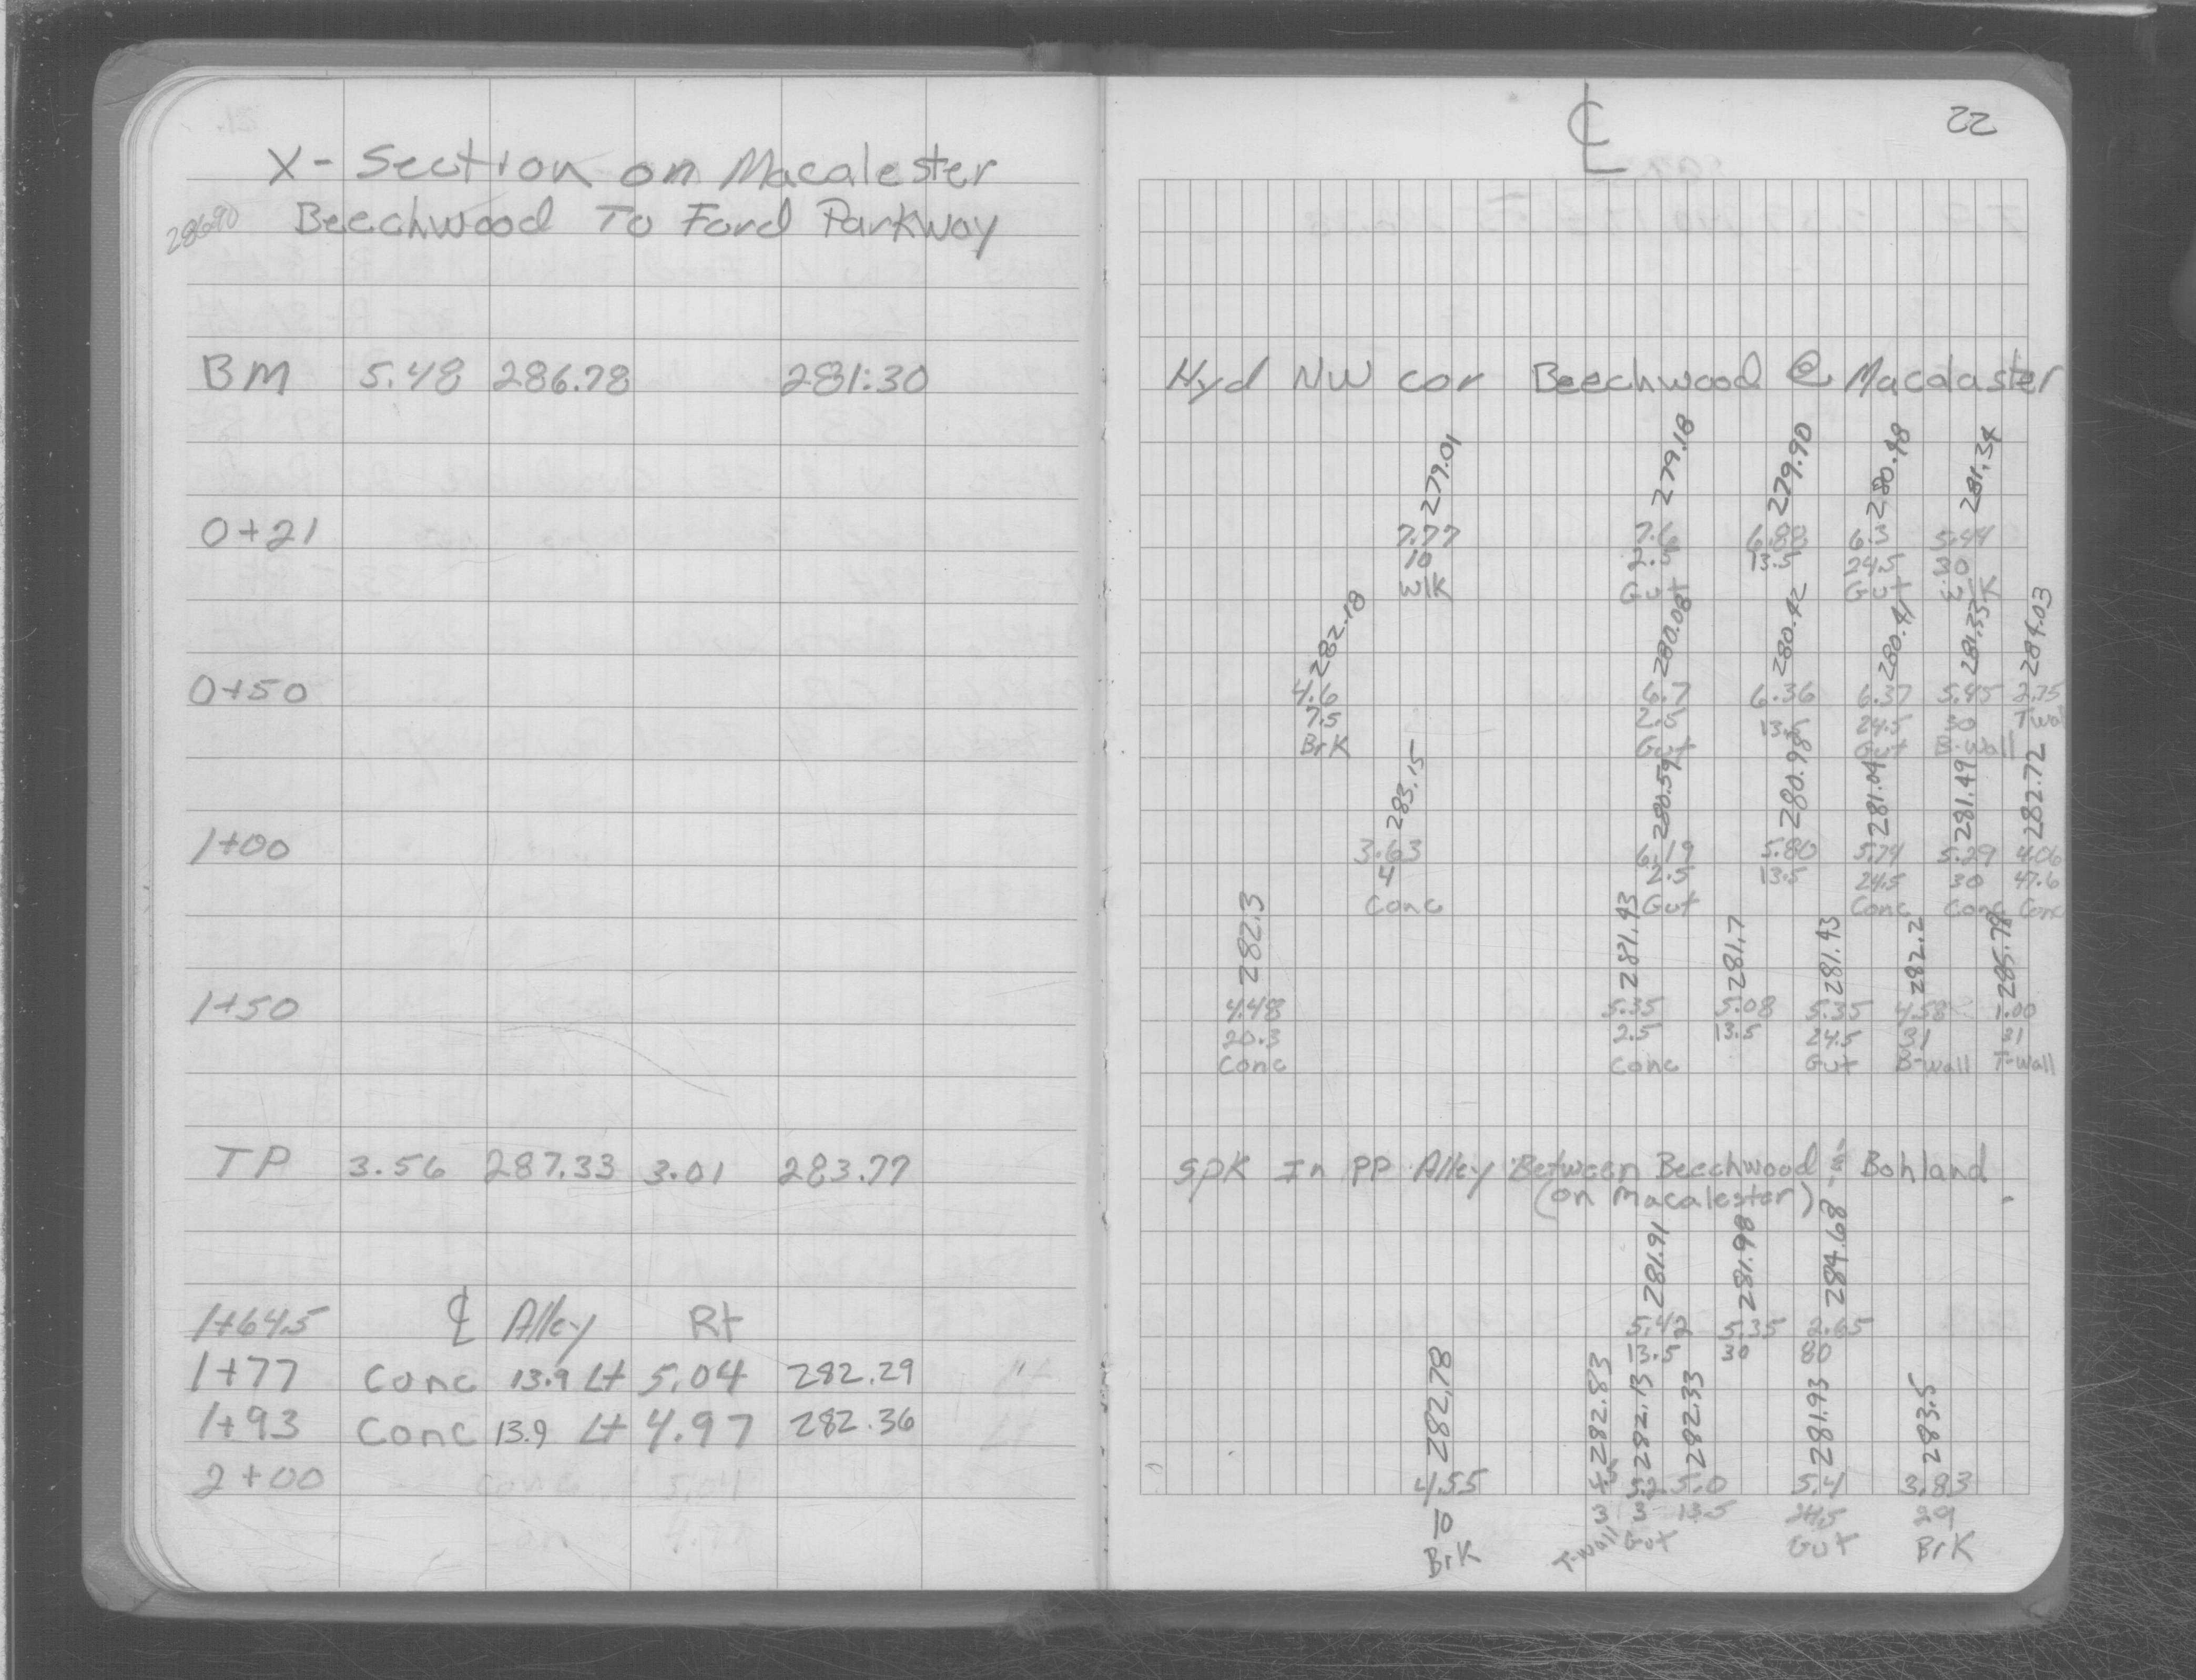 22
℄
X-Section on Macalester
Beechwood To Ford Parkway
28690
BM 5.48 286.78 281.30 Hyd NW cor Beechwood @ Macalaster
279.01 279.18 279.90 280.48 281.34
0+21 7.77 7.6 6.88 6.3 5.44
10 2.5 13.5 24.5 30
WlK Gut Gut WlK
282.18 280.08 280.42 280.41 281.33 284.03
0+50 4.6 6.7 6.36 6.37 5.45 2.75
7.5 2.5 13.5 24.5 30 Twal
BrK Gut Gut B-Wall
283.15 280.59 280.98 281.04 281.49 282.72
1+00 3.63 6.19 5.80 5.74 5.29 4.06
4 2.5 13.5 24.5 30 47.6
Conc Gut Conc Conc Conc
282.3 281.43 281.7 281.43 282.2 285.78
1+50 4.48 5.35 5.08 5.35 4.58 1.00
20.3 2.5 13.5 24.5 31 31
Conc Conc Gut B-Wall T-Wall
TP 3.56 287.33 3.01 283.77 SpK In PP Alley Between Beechwood & Bohland
(on Macalester)
281.91 281.98 284.68
1+64.5 ℄ Alley Rt 5.42 5.35 2.65
13.5 30 80
1+77 Conc 13.9 Lt 5.04 282.29
1+93 Conc 13.9 Lt 4.97 282.36
282.78 282.83 282.13 282.33 281.93 283.5
2+00 4.55 4.5 5.2 5.0 5.4 3.83
10 3 3 13.5 24.5 29
BrK T-Wall Gut Gut BrK